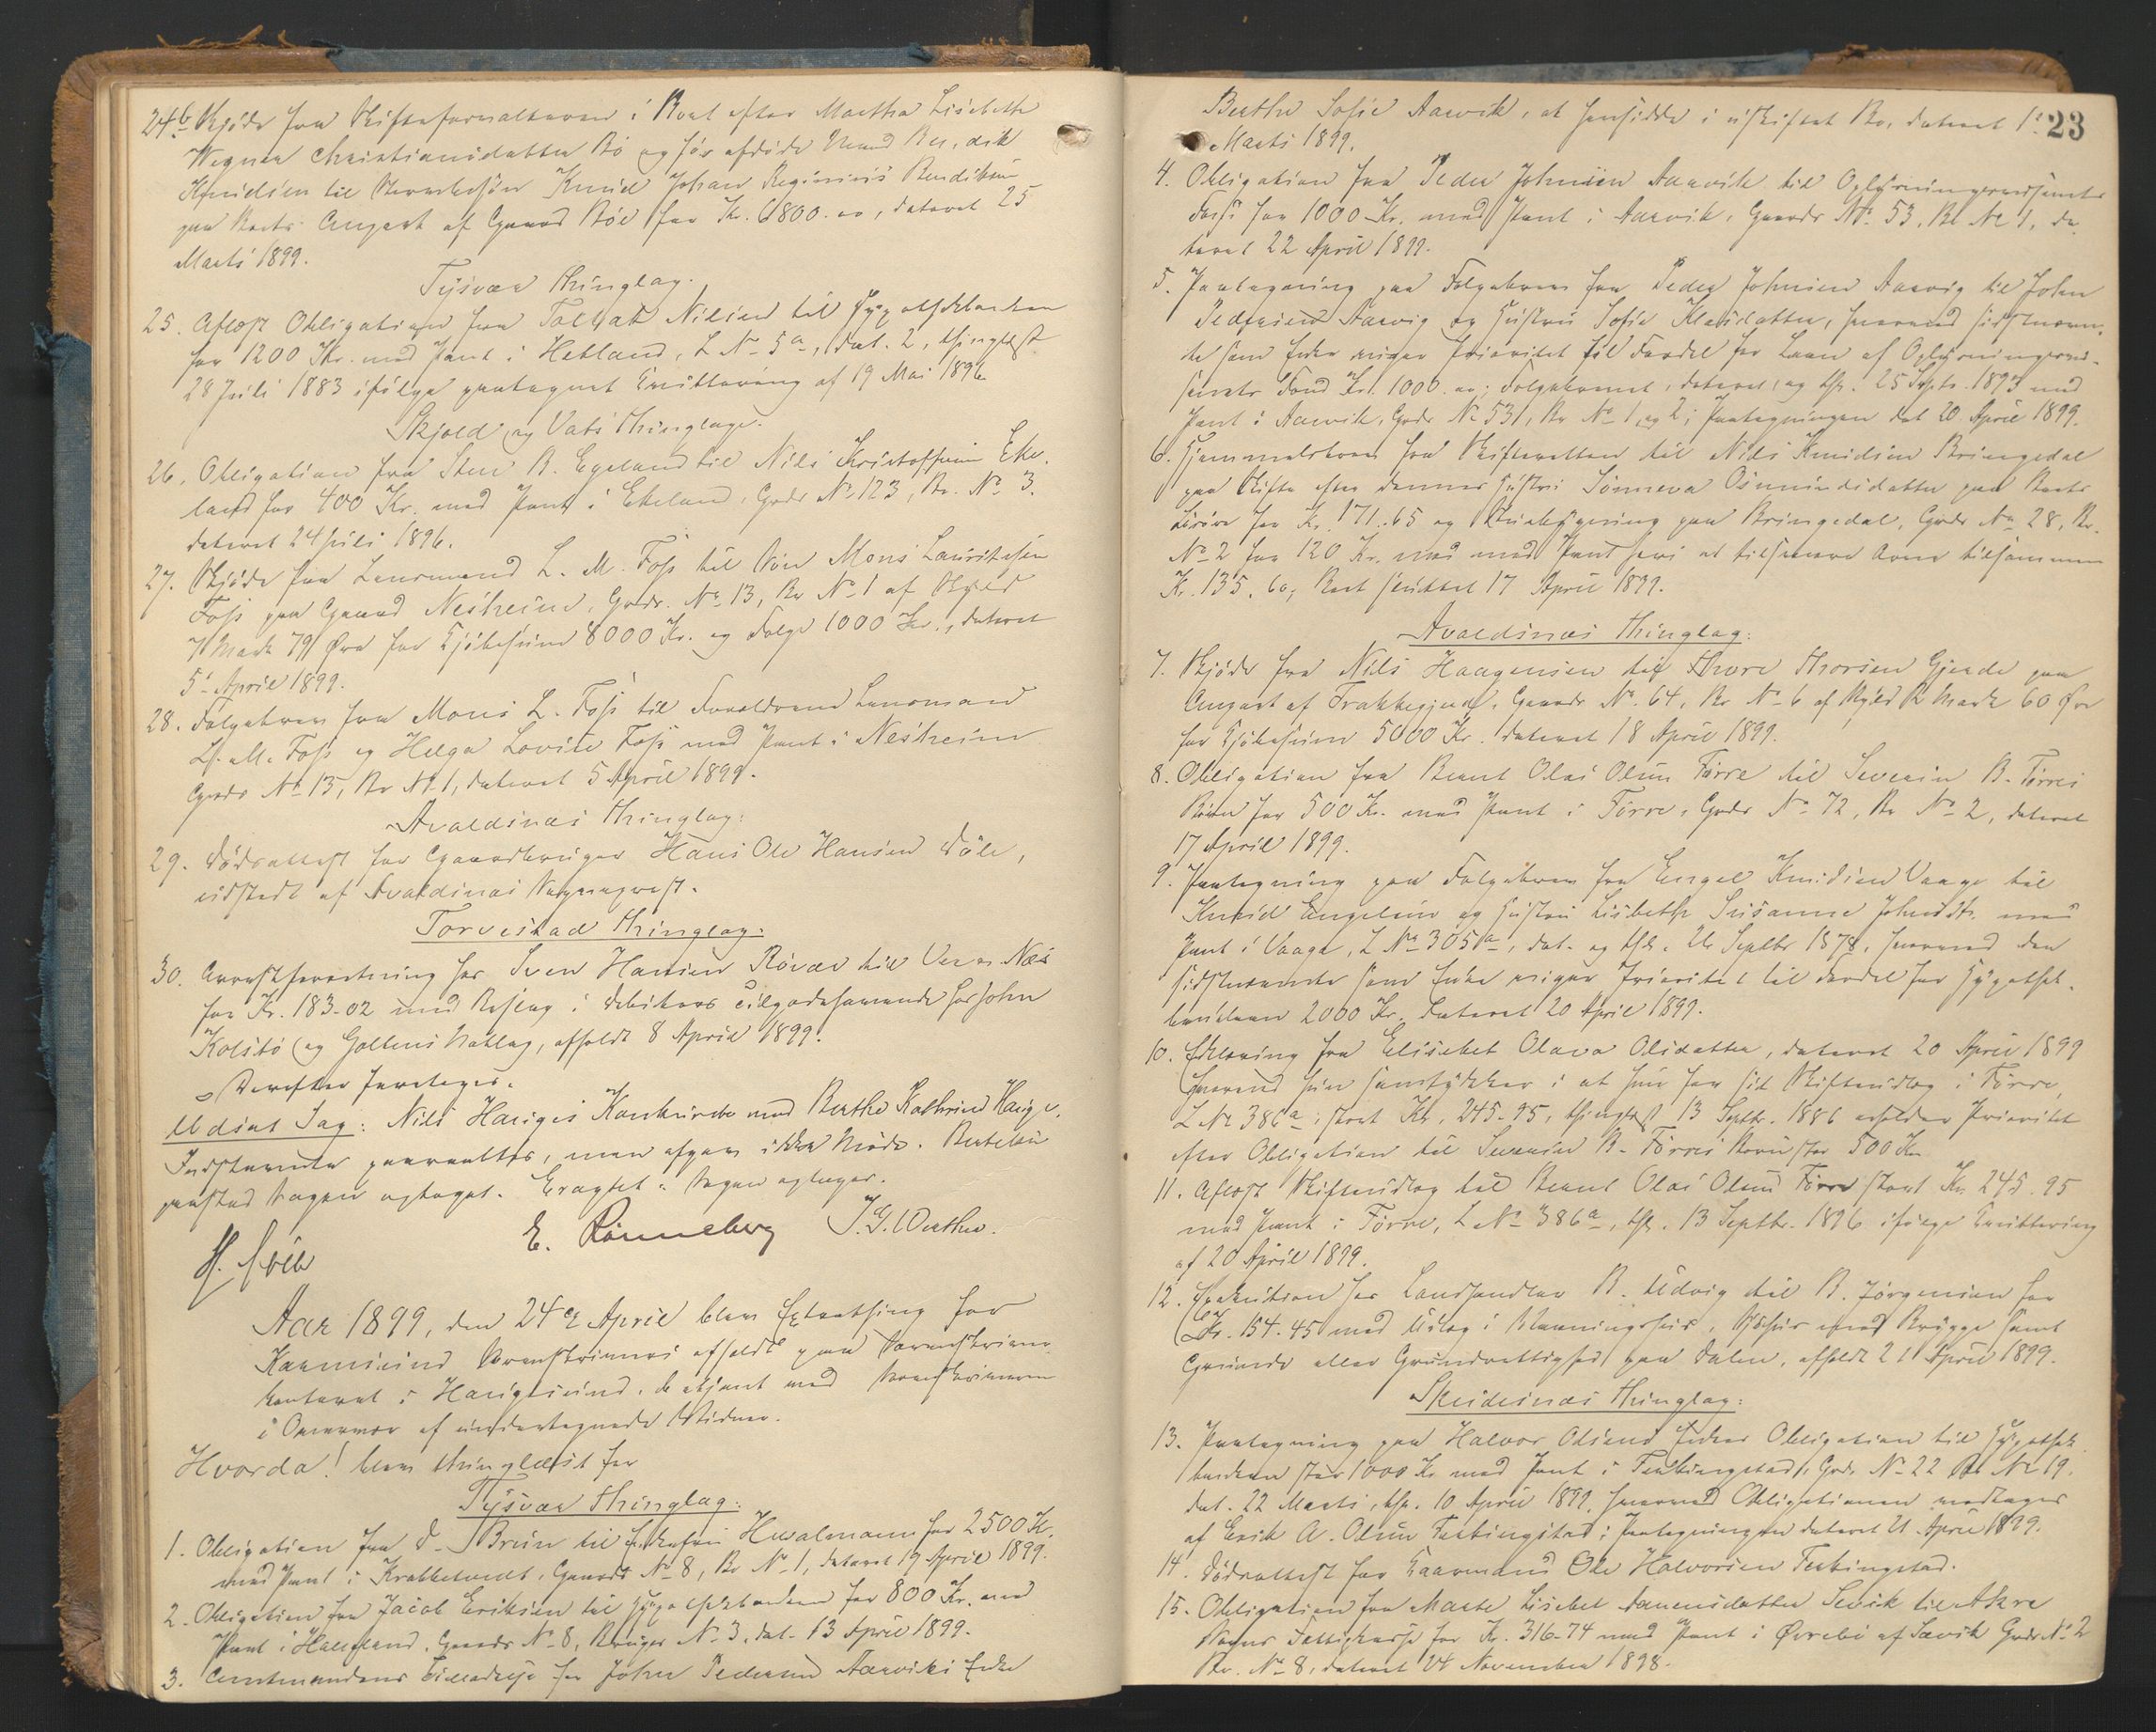 24b Skjøde fra Skifteforvalteren i Boet efter Martha Lisebeth
Wegner Christiansdatter Bö og før afdøde Mand Ben. dik
Knudsen til Stervbosøn Knud Johan Reginius Bendiksen
paa Boets Anpart af Gaard Böe for Kr. 6800.00, dateret 25
Marts 1899.
Tysvær Thinglag.
25. Aflæst Obligation fra Tallak Nilsen til Hypothekbanken
for 1200 Kr. med Pant i Hetland, L No 5a, dat. 2, thinglæst
28 Juli 1883 ifølge paategnet Kvittering af 19 Mai 1896
Skjold og Vats Thinglage.
26. Obligation fra Sten B. Egeland til Nils Kristoffersen Eke
land for 400 Kr. med Pant i Ekeland, Grds No 123, Br. No 3.
dateret 24 Juli 1896.
27. Skjøde fra Lensmand L. M. Foss til Søn Mons Lauritssen
Foss paa Gaard Nesheim, Grds. No 13, Br No 1 af Skyld
7 Mark 79 Øre for Kjøbesum 8000 Kr. og Folge 1000 Kr., dateret
5te April 1899.
28. Folgebrev fra Mons L. Foss til Forældrene Lensmand
L. M. Foss og Helga Lovise Foss med Pant i Nesheim
Gaards No 13, Br No 1, dateret 5 April 1899.
Avaldsnæs Thinglag:
29. Dødsattest for Gaardbruger Hans Ole Hansen Döle,
udstedt af Avaldsnæs Sogneprest.
Torvestad Thinglag:
30. Arrestforretning for Sven Hansen Rövær til Næs
for Kr. 183-02 med Beslag i Debitors Tilgodehavende hos John
Kolstö og Gollens Notlag, afholdt 8 April 1899.
Derefter foretoges.
Udsat Sag: Nils Hauges Konkursbo mod Berthe Kathrine Hauge.
Indstævnte paaraabtes, men afgav ikke Møde. Bertelsen
paastod Sagen optaget. Eragtet: Sagen optages.
E. Rönneberg J. G. Werther.
Aar 1899, den 24de April blev Extrathing for
Karmsund Sorenskriveri afholdt paa Sorenskriver
kontoret i Haugesund, betjent med Sorenskriveren
i Overvær af undertegnede Vidner.
Hvorda! blev thinglæst for
Tysvær Thinglag:
1. Obligation fra D. Brun til Enkefru Hvalmann for 2500 Kr.
med Pant i Krabbetveit, Gaards No 8, Br No 1, dateret 19 April 1899.
2. Obligation fra Jacob Eriksen til Hypothekbanken for 800 Kr. med
Pant i Haugland, Gaards No 8, Bruges No 3, dat. 13 April 1899.
3. Amtmandens Tilladelse for John Pedersen Aarviks Enke
23
Berthe Sofie Aarvik, at hensidde i uskiftet Bo, dateret 1ste
Marts 1899.
4. Obligation fra Peder Johnsen Aarvik til Oplysningsvæsenets
for 1000 Kr. med Pant i Aarvik, Gaards No 53, Br No 1, da
teret 22 April 1899.
5. Paategning paa Folgebrev fra Peder Johnsen Aarvig til John
Pedersen Aarvig og Hustru Sofie Klausdatter, hvorved sidstnævn-
te som Enke viger Prioritet til Fordel for Laan af Oplysningsvæ-
senets Fond Kr. 1000.00; Folgebrevet, dateret og thl. 25 Septr. 1893 med
Pant i Aarvik, Grds No 53, Br No 1 og 2; Paategningen dat 20 April 1899.
6. Hjemmelsbrev fra Skifteretten til Nils Knudsen Bringedal
paa Skifte efter dennes Hustru Sönneva Osmundsdatter paa Boets
Løsøre for Kr. 171.65 og Husebygning paa Bringedal, Grds No 28, Br.
No 2 for 120 Kr. med Pant heri at tilsvare Arve tilsammen
Kr. 135.60, Boet sluttet 17 April 1899.
Avaldsnæs Thinglag:
7. Skjøde fra Nils Haagensen til Thore Thorsen Gjerde paa
Anpart af Frakkagjerd, Gaards No. 64, Br No 6 af Skyld 2 Mark 60 Øre
for Kjøbesum 5000 Kr. dateret 18 April 1899.
8. Obligation fra Bernt Olai Olsen Förre til Severin B. Förres
for 500 Kr. med Pant i Förre, Grds No 72, Br No 2, dateret
17 April 1899.
9. Paategning paa Folgebrev fra Engel Knudsen Vaage til
Knud Engelsen og Hustru Lisbeth Susanne Johnsdtr. med
Pant i Vaage, L No 305a, dat. og thl. 26 Septbr 1878, hvorved den
sidstnævnte som Enke viger Prioritet til Fordel for Hypothek-
banklaan 2000 Kr. dateret 20 April 1899.
10. Erklæring fra Elisabet Olava Olsdatter, dateret 20 April 1899
hvorved hun samtykker i at hun for sit Skifteudlæg i Förre,
L No 386a, stort Kr. 245.95, thinglæst 13 Septbr. 1886 erholder Prioritet
efter Obligation til Severin B. Förres stor 500 Kr
11. Aflæst Skifteudlæg til Bernt Olai Olsen Förre stort Kr 245.95
med Pant i Förre, L No 386a, thl. 13 Septbr. 1896 ifølge Kvittering
af 20 April 1899.
12. Exekution for Landhandler B. Udvig til B. Jörgensen for
Kr. 154.45 med Udlæg i Vaaningshus, Søhus med Brygge samt
Grunde eller Grundrettighed paa Dalen, afholdt 21 April 1899.
Skudesnæs Thinglag:
13. Paategning paa Halvor Olsens Enkes Obligation til Hypothek
banken stor 1000 Kr med Pant i Ferkingstad, Grds. No 22 Br No 19.
dat. 22 Marts, thl. 10 April 1899, hvorved Obligationen vedtages
af Erik A. Olsen Ferkingstad; Paategningen dateret 21 April 1899.
14. Dødsattest for Kaarmand Ole Halvorsen Ferkingstad.
15. Obligation fra Marte Lisebet Aanensdatter Sevik til Akre
Sogns Fattigkasse for Kr. 316-74 med Pant i Øvrebö af Sævik Grds No 2
Br. No 8, dateret 24 November 1898.